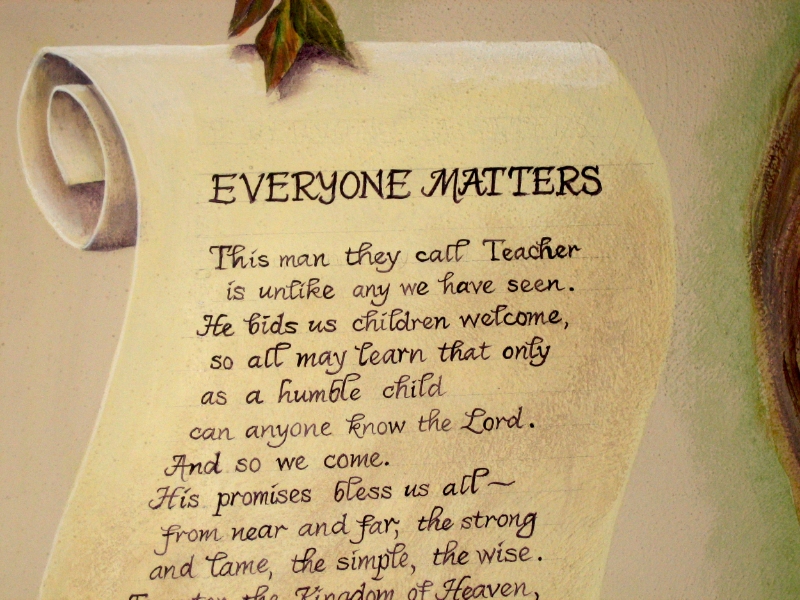 EVERYONE MATTERS
This man they call Teacher
is unlike any we have seen.
He bids us children welcome,
so all may learn that only
as a humble child
can anyone know the Lord.
And so we come.
His promises bless us all~
from near and far, the strong
and lame, the simple, the wise.
the Kingdom of Heaven,